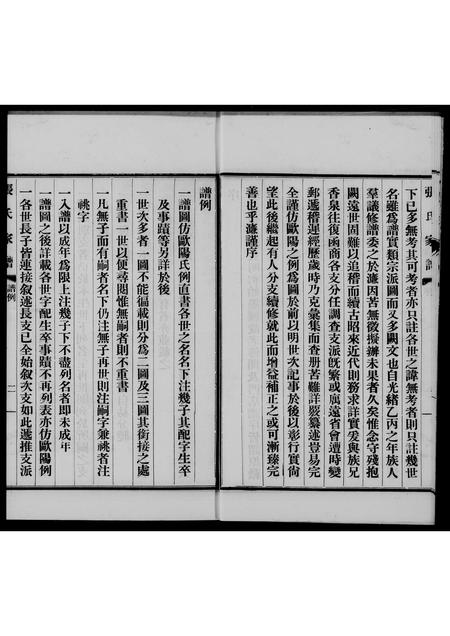 張氏家譜
下已多無考其可考者亦只註各世之諱無考者則只註幾世
名雖爲譜實類宗派圖而又多闕文也自光緒乙丙之年族人
羣議修譜委之於濂因苦無微擬辦未果者久矣惟念守殘抱
闕遠世固難以追稽而續古昭來近代則務求詳實爰與族兄
香泉往復函商各支分任調查支派旣繁或處遠省會遭時變
郵遞稽遲經歷歲時乃克彙集而查册苦難詳覈纂述豈易完
全謹仿歐陽之例爲圖於前以明世次記事於後以彰行實尙
望此後繼起有人分支續修就此而增益補正之或可漸臻完
善也乎濂謹序
譜例
一譜圖仿歐陽氏例直書各世之名名下注幾子其配字生卒
及事蹟等另詳於後
一世次多者一圖不能徧載則分爲二圖及三圖其銜接之處
重書一世以便尋閱惟無嗣者則不重書
一凡無子而有嗣者名下仍注無子再世則注嗣字兼祧者注
祧字
一入譜以成年爲限上注幾子下不盡列名者即未成年
一譜圖之後詳載各世字配生卒事蹟不再列表亦仿歐陽例
一各世長子皆連接叙述長支已全始叙次支如此遞推支派
張氏家譜
譜例